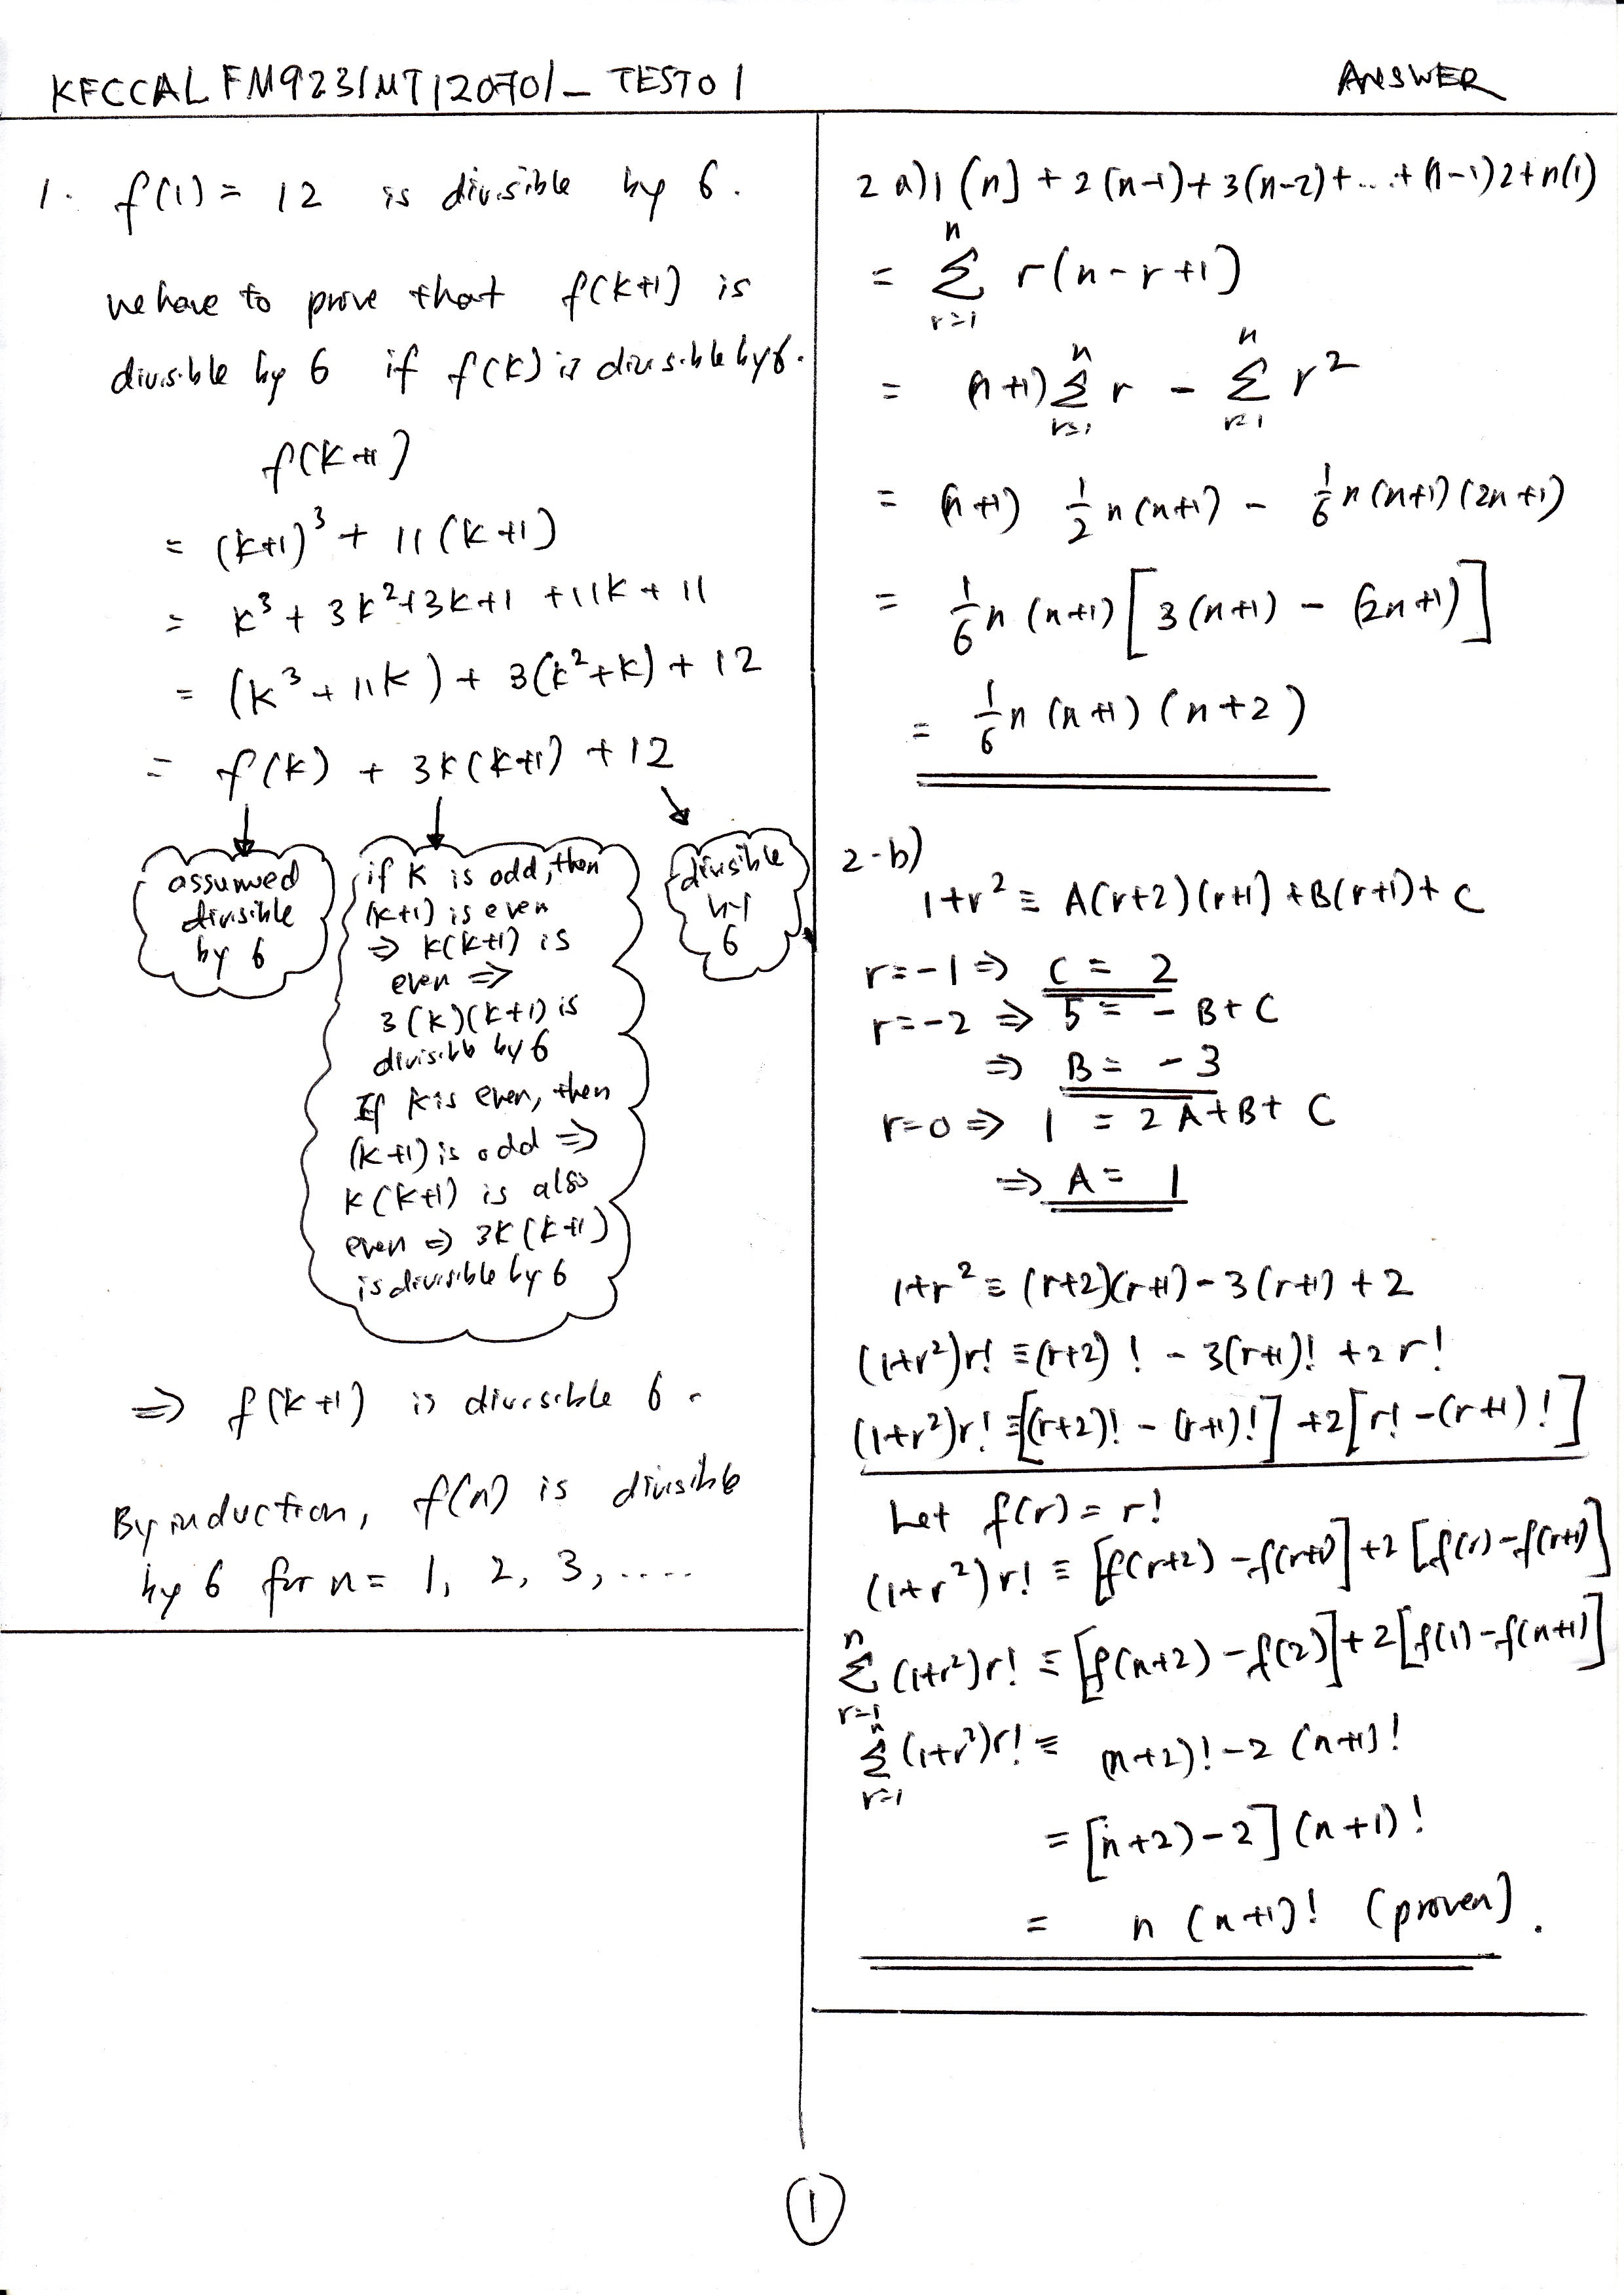 KFCCAL FM923/MT12070/_ TEST01
ANSWER
1. f(1) = 12 is divisible by 6.
we have to prove that f(k+1) is
divisible by 6 if f(k) is divisible by 6.
f(k+1)
= (k+1)³ + 11(k+1)
= k³ + 3k²+3k+1 +11k + 11
= (k³ + 11k) + 3(k²+k) + 12
= f(k) + 3k(k+1) + 12
assumed
divisible
by 6
if k is odd, then
(k+1) is even
⇒ k(k+1) is
even ⇒
3(k)(k+1) is
divisible by 6
If k is even, then
(k+1) is odd ⇒
k(k+1) is also
even ⇒ 3k(k+1)
is divisible by 6
divisible
by
6
⇒ f(k+1) is divisible 6.
By induction, f(n) is divisible
by 6 for n = 1, 2, 3, ....
2 a) 1(n) + 2(n-1) + 3(n-2) + ... + (n-1)2 + n(1)
= n Σ r=1 r(n-r+1)
= (n+1) n Σ r=1 r - n Σ r=1 r²
= (n+1) 1/2 n(n+1) - 1/6 n(n+1)(2n+1)
= 1/6 n(n+1)[3(n+1) - (2n+1)]
= 1/6 n(n+1)(n+2)
2-b)
1+r² ≡ A(r+2)(r+1) + B(r+1) + C
r=-1 ⇒ C = 2
r=-2 ⇒ 5 = -B+C
⇒ B = -3
r=0 ⇒ 1 = 2A+B+C
⇒ A = 1
1+r² ≡ (r+2)(r+1) - 3(r+1) + 2
(1+r²)r! ≡ (r+2)! - 3(r+1)! + 2r!
(1+r²)r! ≡ [(r+2)! - (r+1)!] + 2[r! - (r+1)!]
Let f(r) = r!
(1+r²)r! ≡ [f(r+2) - f(r+1)] + 2[f(r) - f(r+1)]
n Σ r=1 (1+r²)r! ≡ [f(n+2) - f(2)] + 2[f(1) - f(n+1)]
n Σ r=1 (1+r²)r! ≡ (n+2)! - 2(n+1)!
= [(n+2) - 2](n+1)!
= n(n+1)! (proven).
1